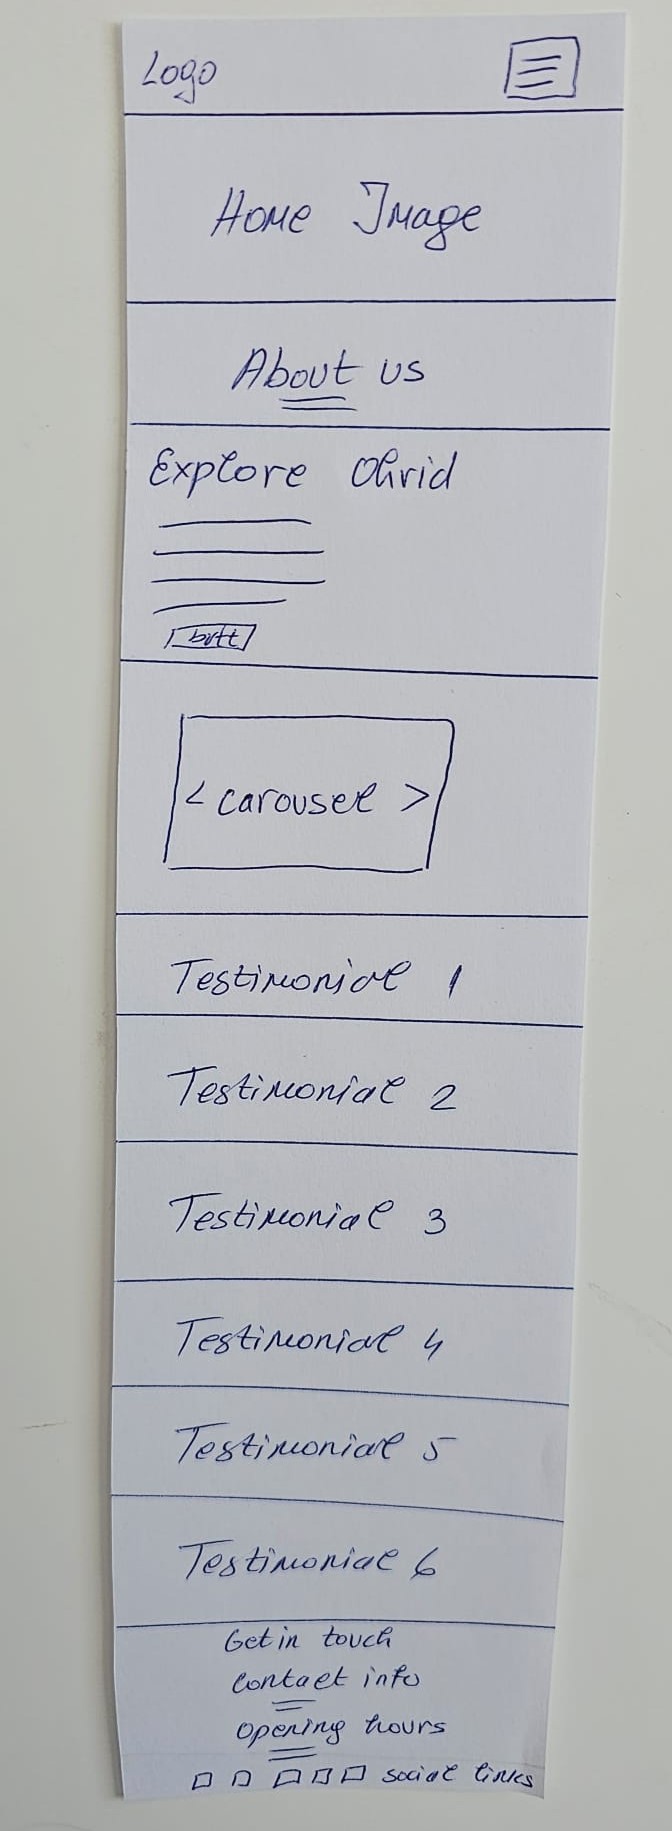 Logo
Home Image
About us
Explore Ohrid
butt
< carousel >
Testimonial 1
Testimonial 2
Testimonial 3
Testimonial 4
Testimonial 5
Testimonial 6
Get in touch
contact info
opening hours
social links